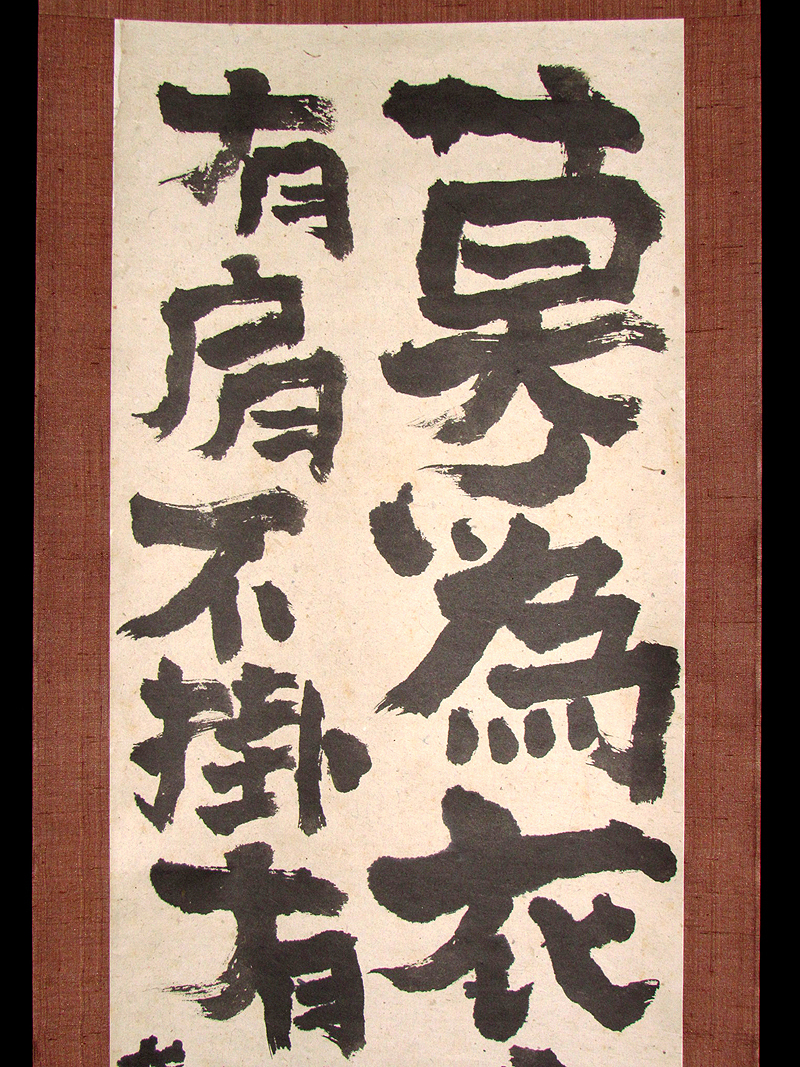 莫為衣
有肩不掛有